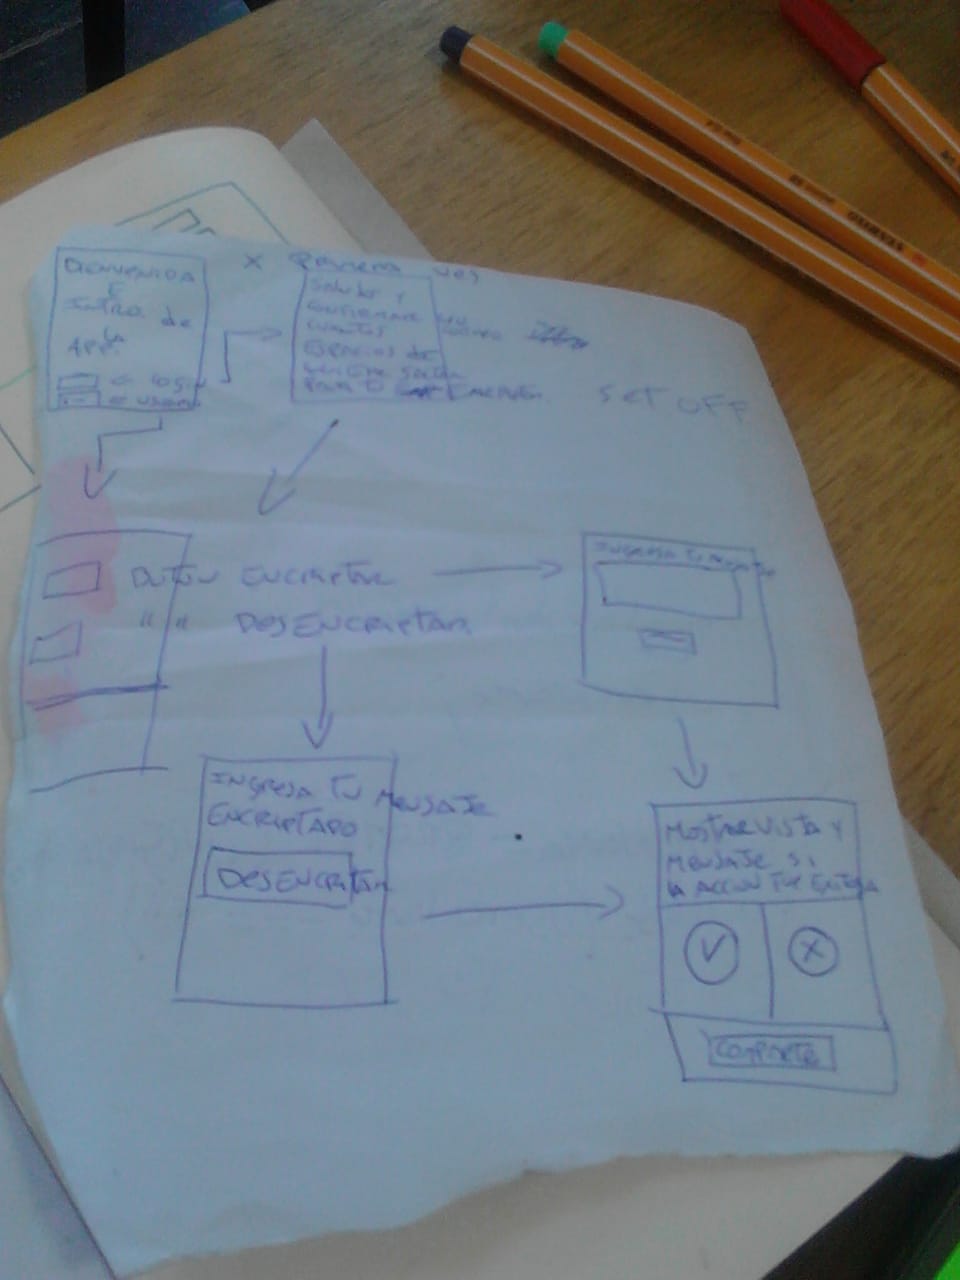 BIENVENIDA
E
INTRO de
LA
APP.
← LOGIN
X PRIMERA VES
SALUDO Y
CONFIRMAR
CUANTOS
ESPACIOS DE
PARA TU
SET OFF
BOTÓN ENCRIPTAR
" " DESENCRIPTAR
INGRESA TU MENSAJE
INGRESA TU MENSAJE
ENCRIPTADO
DESENCRIPTAR
MOSTAR VISTA Y
MENSAJE SI
LA ACCION FUE EXITOSA
COMPARTE